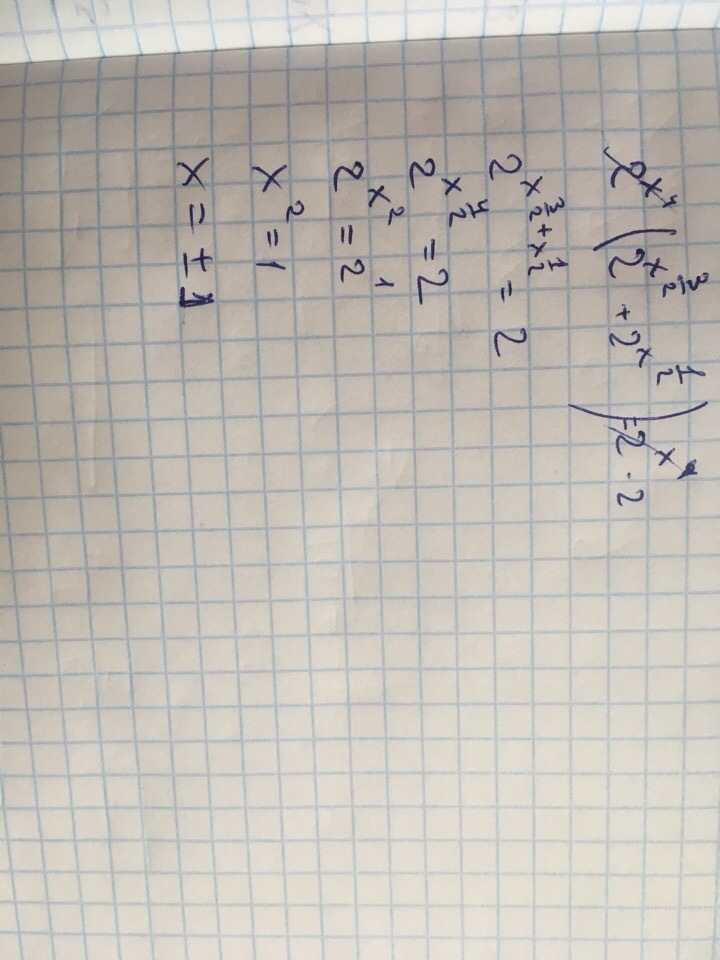 2^{x^4} (2^{x^{3/2}} + 2^{x^{1/2}}) = 2^{x^4} · 2
2^{x^{3/2} + x^{1/2}} = 2
2^{x^{4/2}} = 2
2^{x^2} = 2^1
x^2 = 1
x = ± 1